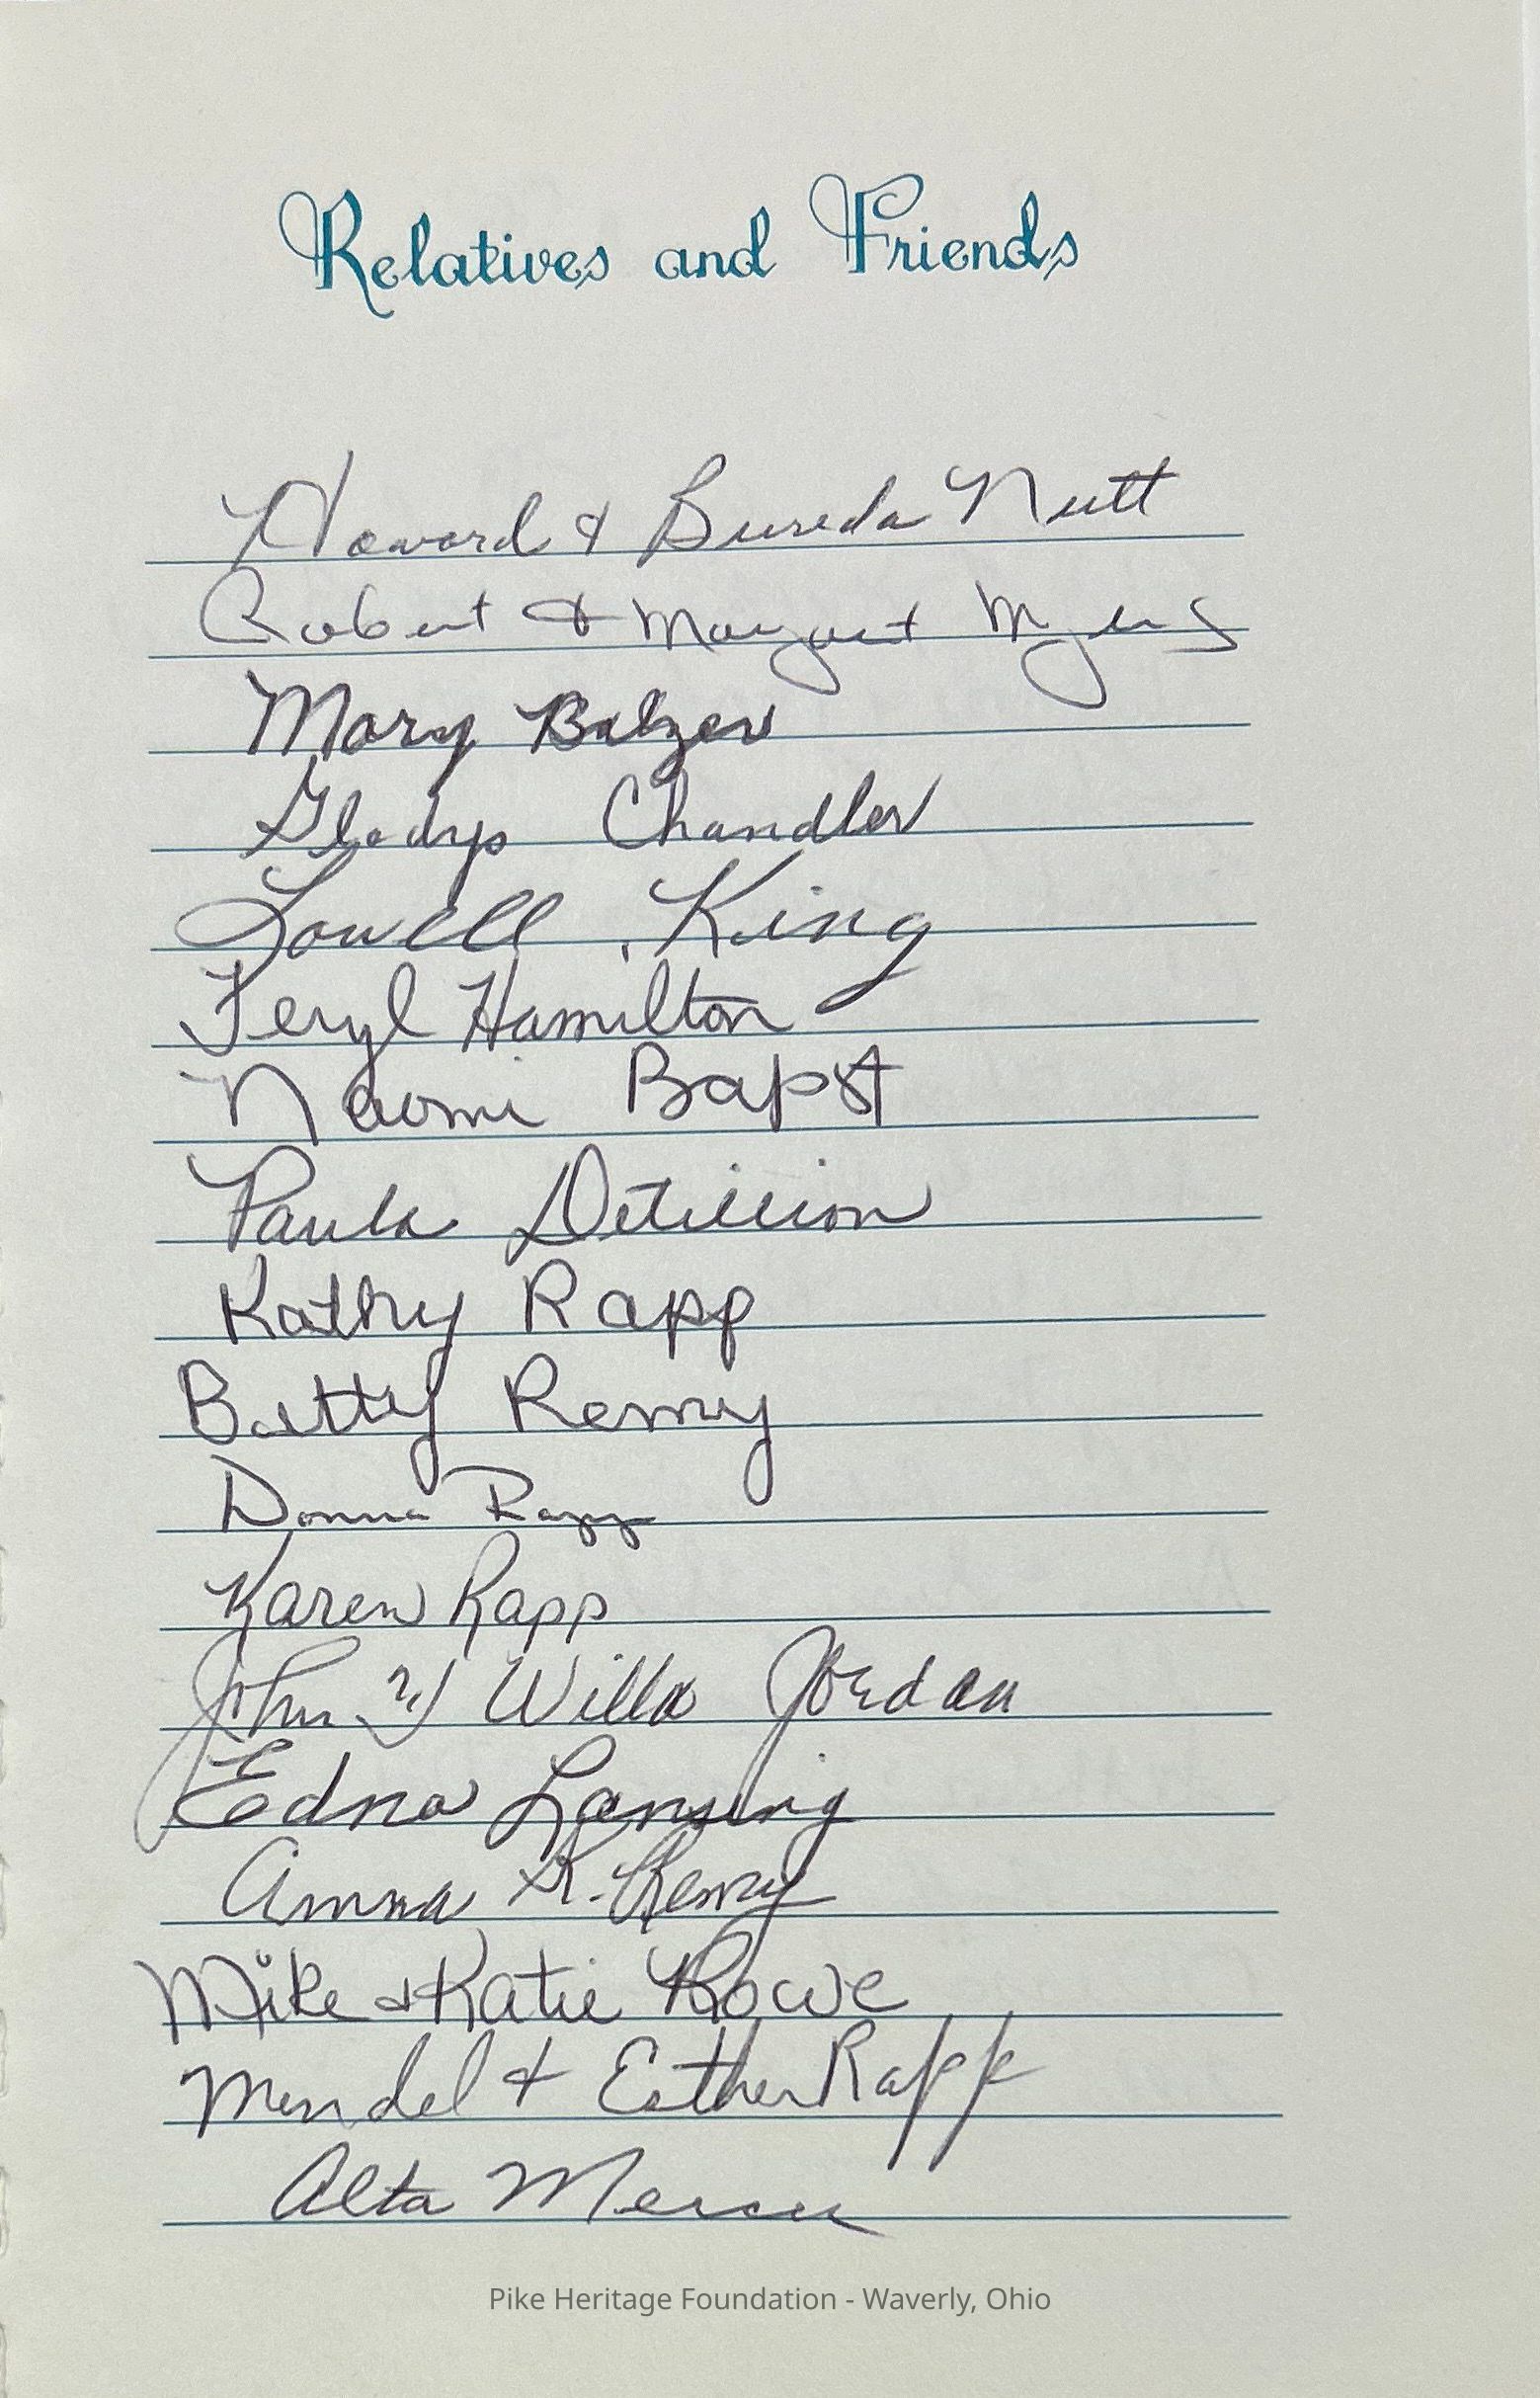 Relatives and Friends
Howard & Bureda Nutt
Robert & Margaret Myers
Mary Balzer
Gladys Chandler
Lowell King
Feryl Hamilton
Naomi Bapst
Paula Detillion
Kathy Rapp
Betty Remy
Donna Rapp
Karen Rapp
John & Willa Jordan
Edna Lansing
Anna K. Remy
Mike & Katie Rowe
Mendel & Esther Rapp
Alta Mercer
Pike Heritage Foundation - Waverly, Ohio